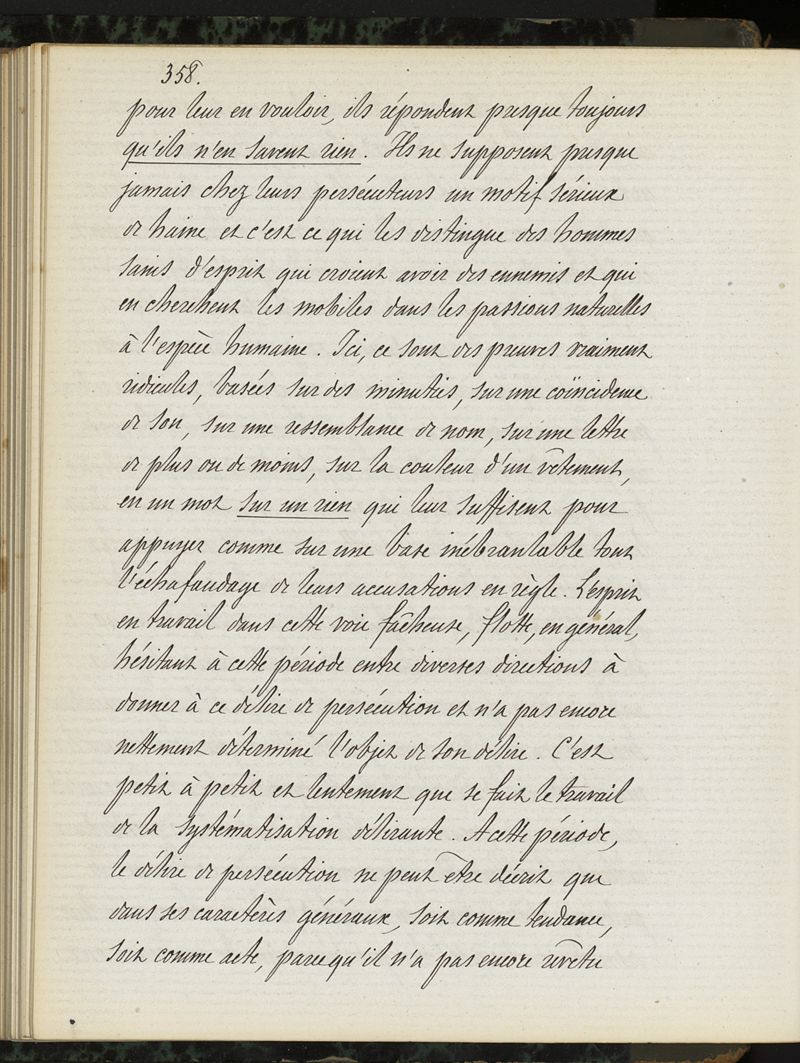 358.
pour leur en vouloir, ils répondent presque toujours
qu'ils n'en savent rien. Ils ne supposent presque
jamais chez leurs persécuteurs un motif sérieux
de haine et c'est ce qui les distingue des hommes
sains d'esprit qui croient avoir des ennemis et qui
en cherchent les mobiles dans les passions naturelles
à l'espèce humaine. Ici, ce sont des preuves vraiment
ridicules, basées sur des minuties, sur une coïncidence
de son, sur une ressemblance de nom, sur une lettre
de plus ou de moins, sur la couleur d'un vêtement,
en un mot sur un rien qui leur suffisent pour
appuyer comme sur une base inébranlable tout
l'échafaudage de leurs accusations en règle. L'esprit
en travail dans cette voie fâcheuse, flotte, en général,
hésitant à cette période entre diverses directions à
donner à ce délire de persécution et n'a pas encore
nettement déterminé l'objet de son délire. C'est
petit à petit et lentement que se fait le travail
de la systématisation délirante. A cette période,
le délire de persécution ne peut être décrit que
dans ses caractères généraux, soit comme tendance,
soit comme acte, parce qu'il n'a pas encore revêtu